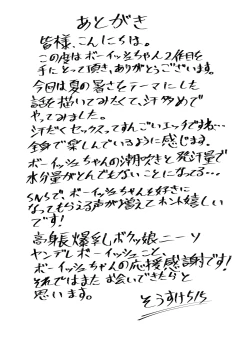 あとがき
皆様、こんにちは。
この度はボーイッシュちゃん2作目を
手にとって頂き、ありがとうございます。
今回は夏の暑さをテーマにした
話を描いてみたくて、汗多めで
やってみました。
汗だくセックスってすんごいエッチですね…
全身で楽しんでいるように感じます。
ボーイッシュちゃんの潮吹きと発汗量で
水分量がとんでもないことになってる…
SNSで、ボーイッシュちゃんを好きに
なってもらえる声が増えてホント嬉しい
です!
高身長爆乳ボクッ娘ニーソ
ヤンデレボーイッシュこと、
ボーイッシュちゃんの応援感謝です!
それではまたお会いできたらと
思います。
そうすけ5/5